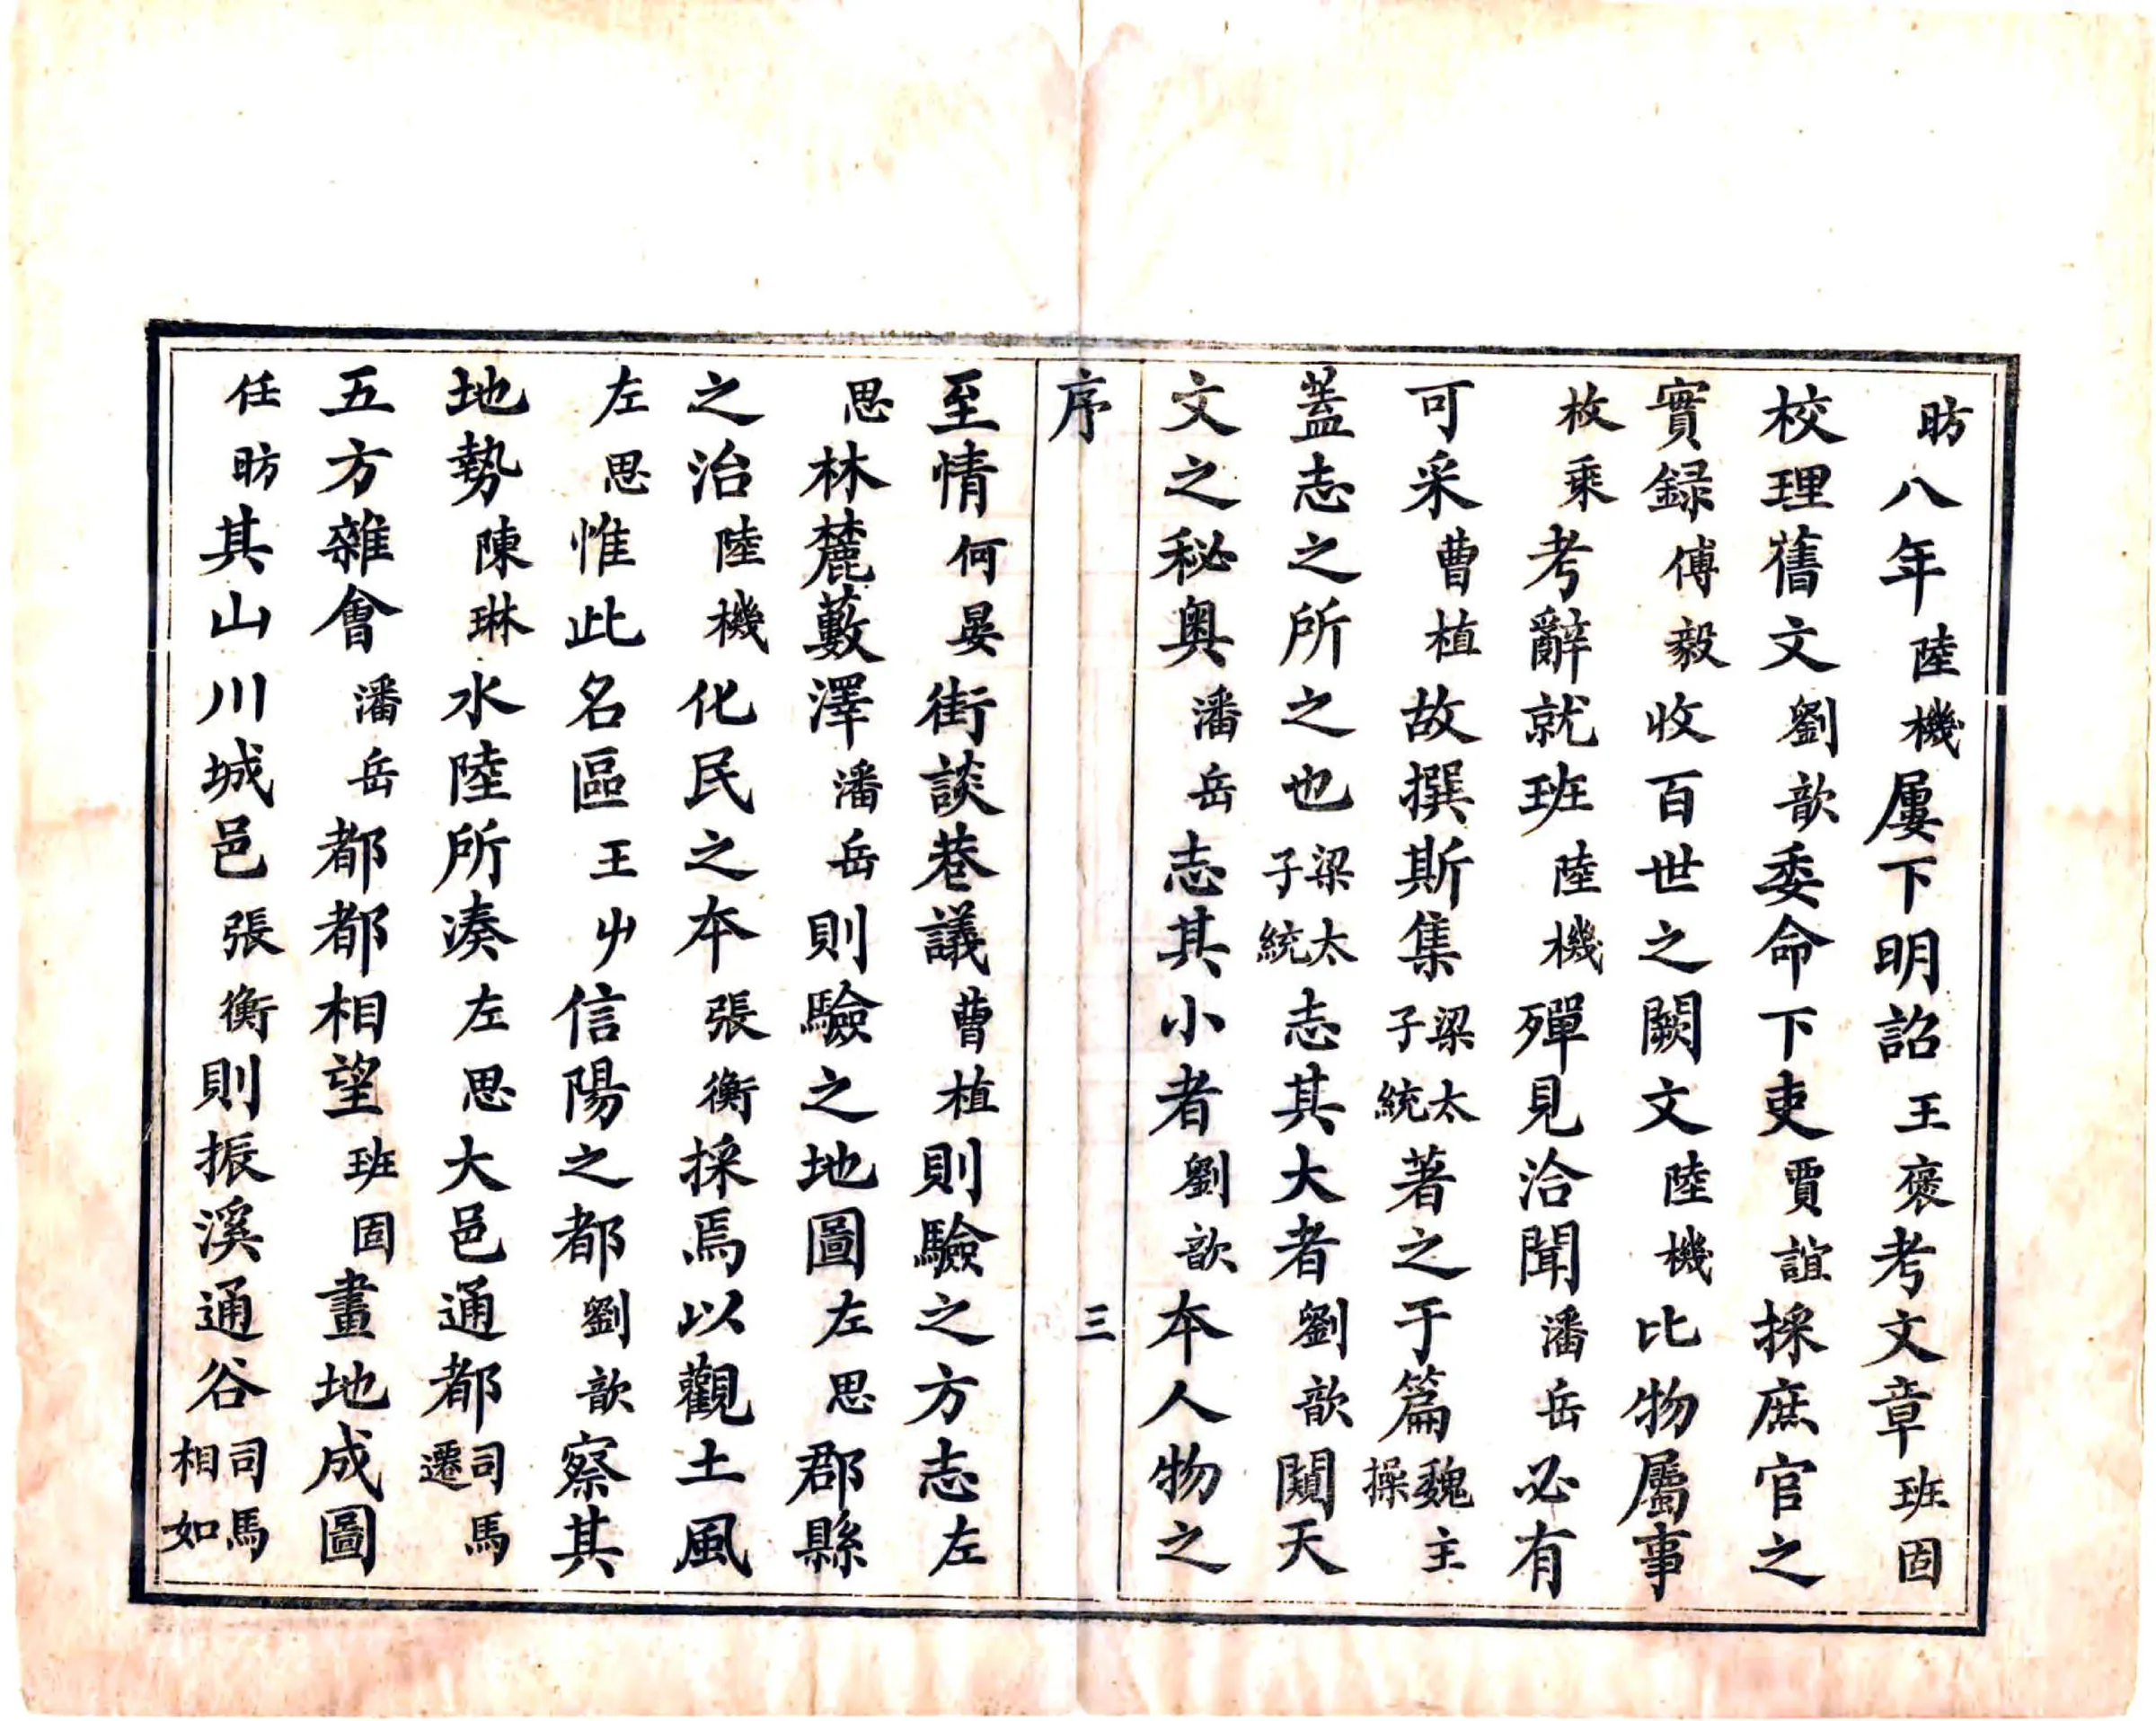 昉八年陸機屢下明詔王褒考文章班固
校理舊文劉歆委命下吏賈誼採庶官之
實録傅毅收百世之闕文陸機比物屬事
枚乘考辭就班陸機殫見洽聞潘岳必有
可采曹植故撰斯集梁太子統著之于篇魏主操
蓋志之所之也梁太子統志其大者劉歆闚天
文之秘奥潘岳志其小者劉歆本人物之
序 三
至情何晏街談巷議曹植則驗之方志左
思林麓藪澤潘岳則驗之地圖左思郡縣
之治陸機化民之本張衡採焉以觀土風
左思惟此名區王屮信陽之都劉歆察其
地勢陳琳水陸所湊左思大邑通都司馬遷
五方雜會潘岳都都相望班固畫地成圖
任昉其山川城邑張衡則振溪通谷司馬相如